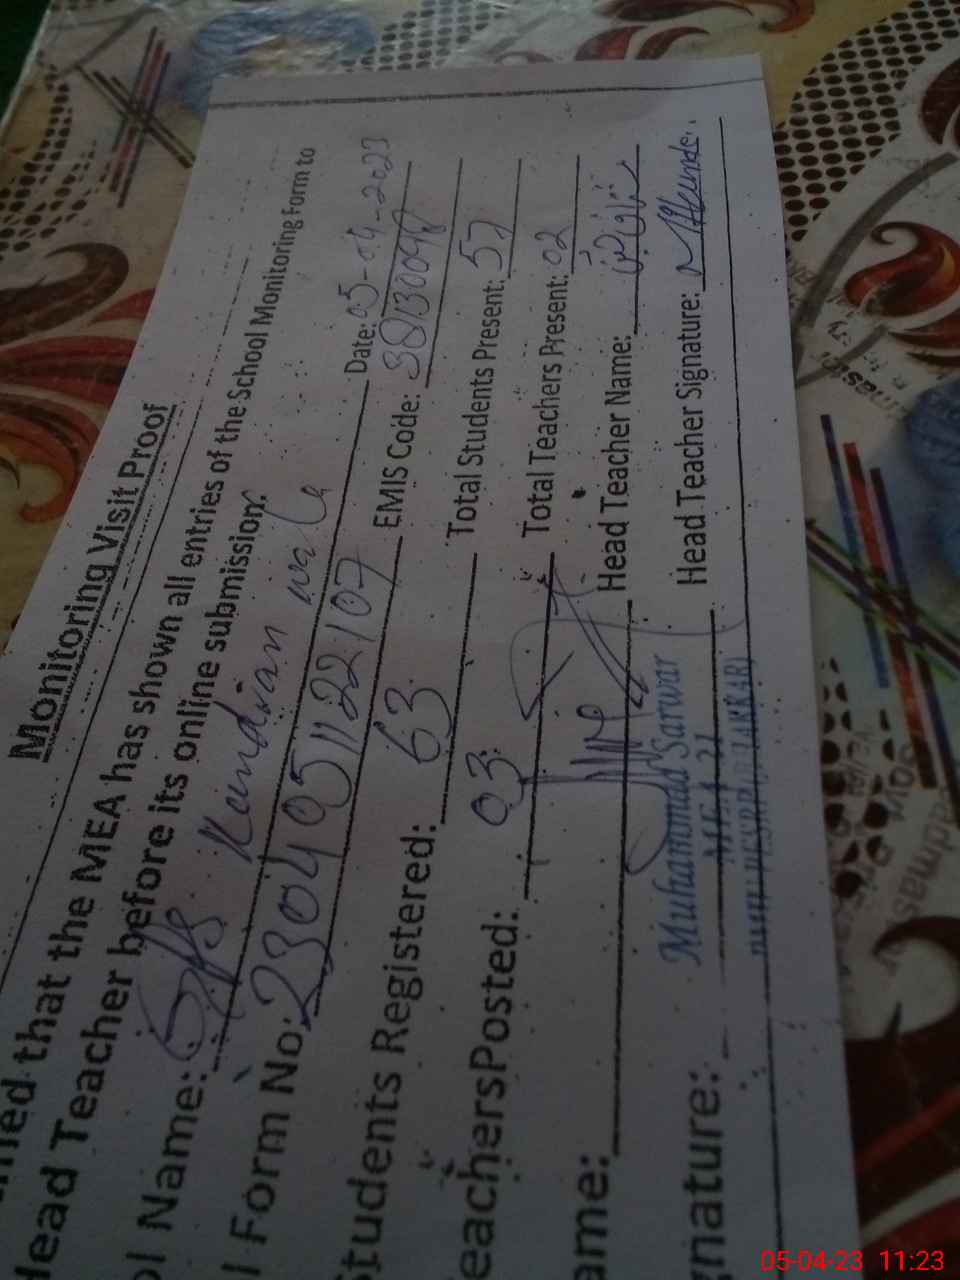 Monitoring Visit Proof
that the MEA has shown all entries of the School Monitoring Form to
Head Teacher before its online submission.
Name: GPS Kundian wala Date: 05-04-2023
Form No: 2304051122107 EMIS Code: 38130098
Students Registered: 63 Total Students Present: 57
Teachers Posted: 03 Total Teachers Present: 02
ame: Head Teacher Name:
Muhammad Sarwar
gnature: MEA 21 Head Teacher Signature:
(BHAKKAR)
05-04-23 11:23